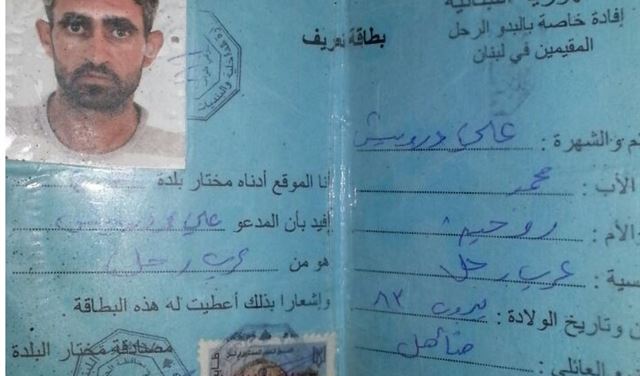 إفادة خاصة بالبدو الرحل
المقيمين في لبنان
م و الشهرة : علي درويش
الأب : محمد
الأم :
سية : عرب رحل
ن وتاريخ الولادة : بيروت ٨٣
ع العائلي : متأهل
بطاقة تعريف
أنا الموقع أدناه مختار بلدة
أفيد بأن المدعو علي درويش
هو من عرب رحل
وإشعارا بذلك أعطيت له هذه البطاقة
مصادقة مختار البلدة